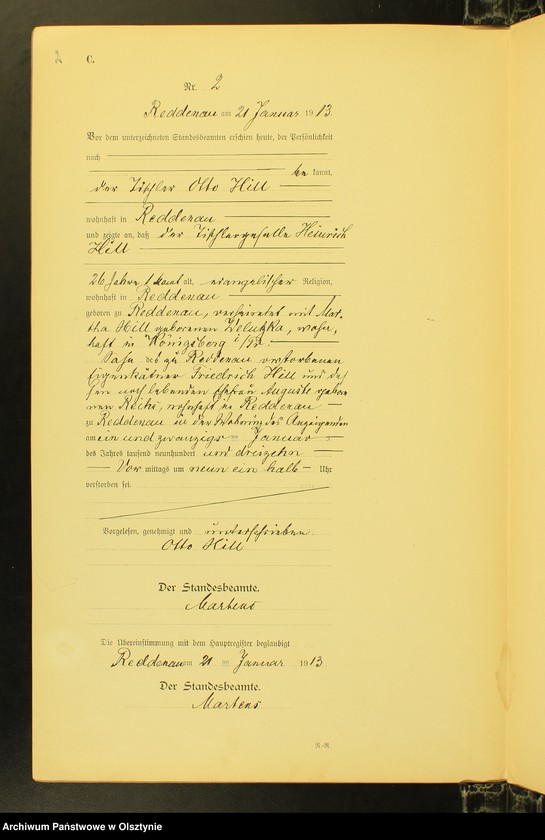 2
C.
Nr. 2
Reddenau am 21 Januar 1913.
Vor dem unterzeichneten Standesbeamten erschien heute, der Persönlichkeit
nach
be kannt,
der Tischler Otto Hill
wohnhaft in Reddenau
und zeigte an, daß der Tischlergeselle Heinrich
Hill
26 Jahre 1 Monat alt, evangelischer Religion,
wohnhaft in Reddenau
geboren zu Reddenau, verheiratet mit Mar-
tha Hill geborenen, wohn-
haft in Königsberg i/Pr.
Sohn des zu Reddenau verstorbenen
Eigenkätner Friedrich Hill und des-
sen noch lebenden Ehefrau Auguste gebore
nen, wohnhaft in Reddenau
zu Reddenau in der Wohnung des Anzeigenden
am ein und zwanzigs ten Januar
des Jahres tausend neunhundert und dreizehn
Vor mittags um neun ein halb Uhr
verstorben sei.
Vorgelesen, genehmigt und unterschrieben.
Otto Hill
Der Standesbeamte.
Martens
Die Übereinstimmung mit dem Hauptregister beglaubigt
Reddenau am 21 ten Januar 1913.
Der Standesbeamte.
Martens
N.-R.
Archiwum Państwowe w Olsztynie